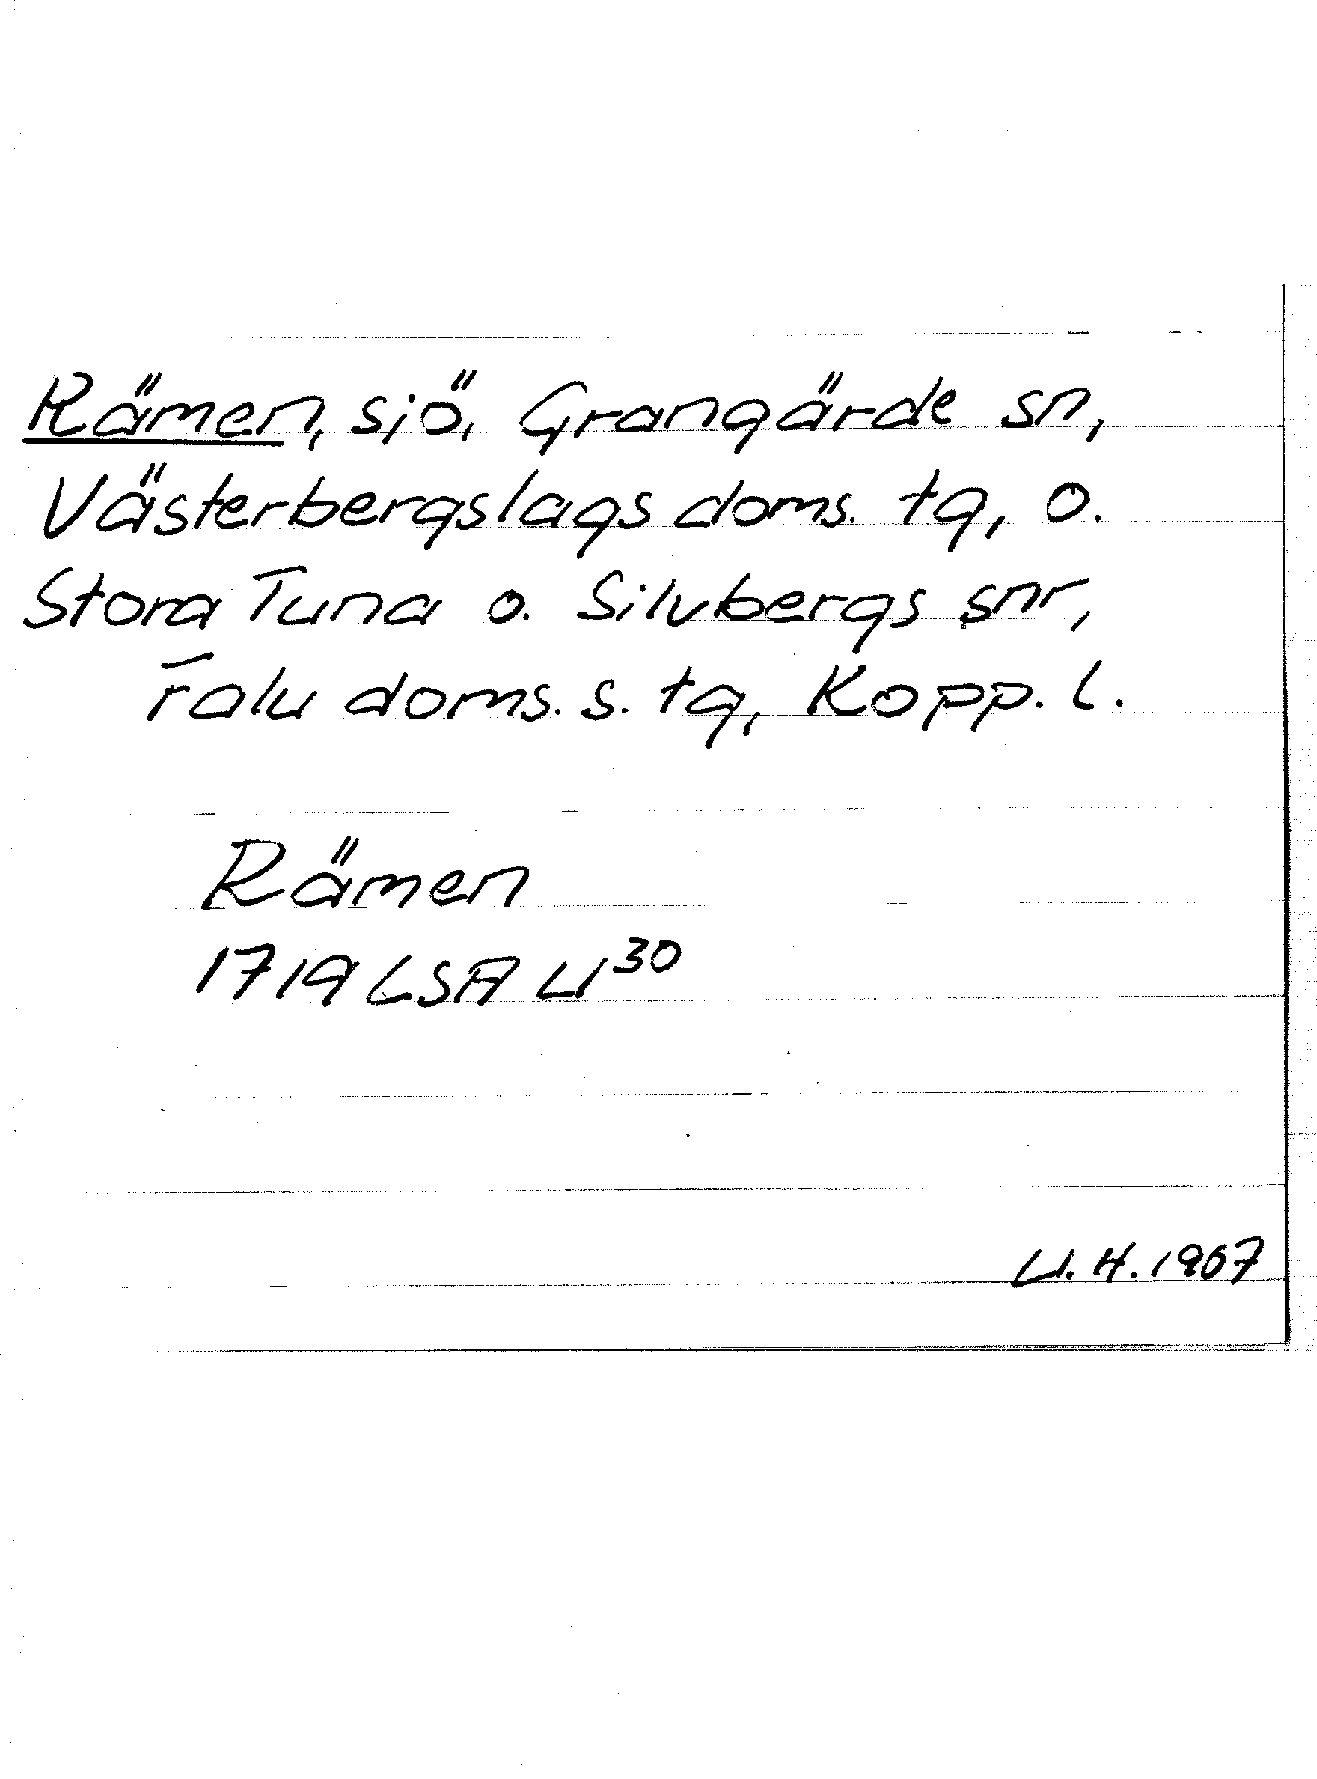 Rämen, sjö, Grangärde sn,
Västerbergslags doms. tg, o.
Stora Tuna o. Silvbergs snr,
Falu doms. s. tg, Kopp. l.
Rämen
1719 LSA U³⁰
U. H. 1967